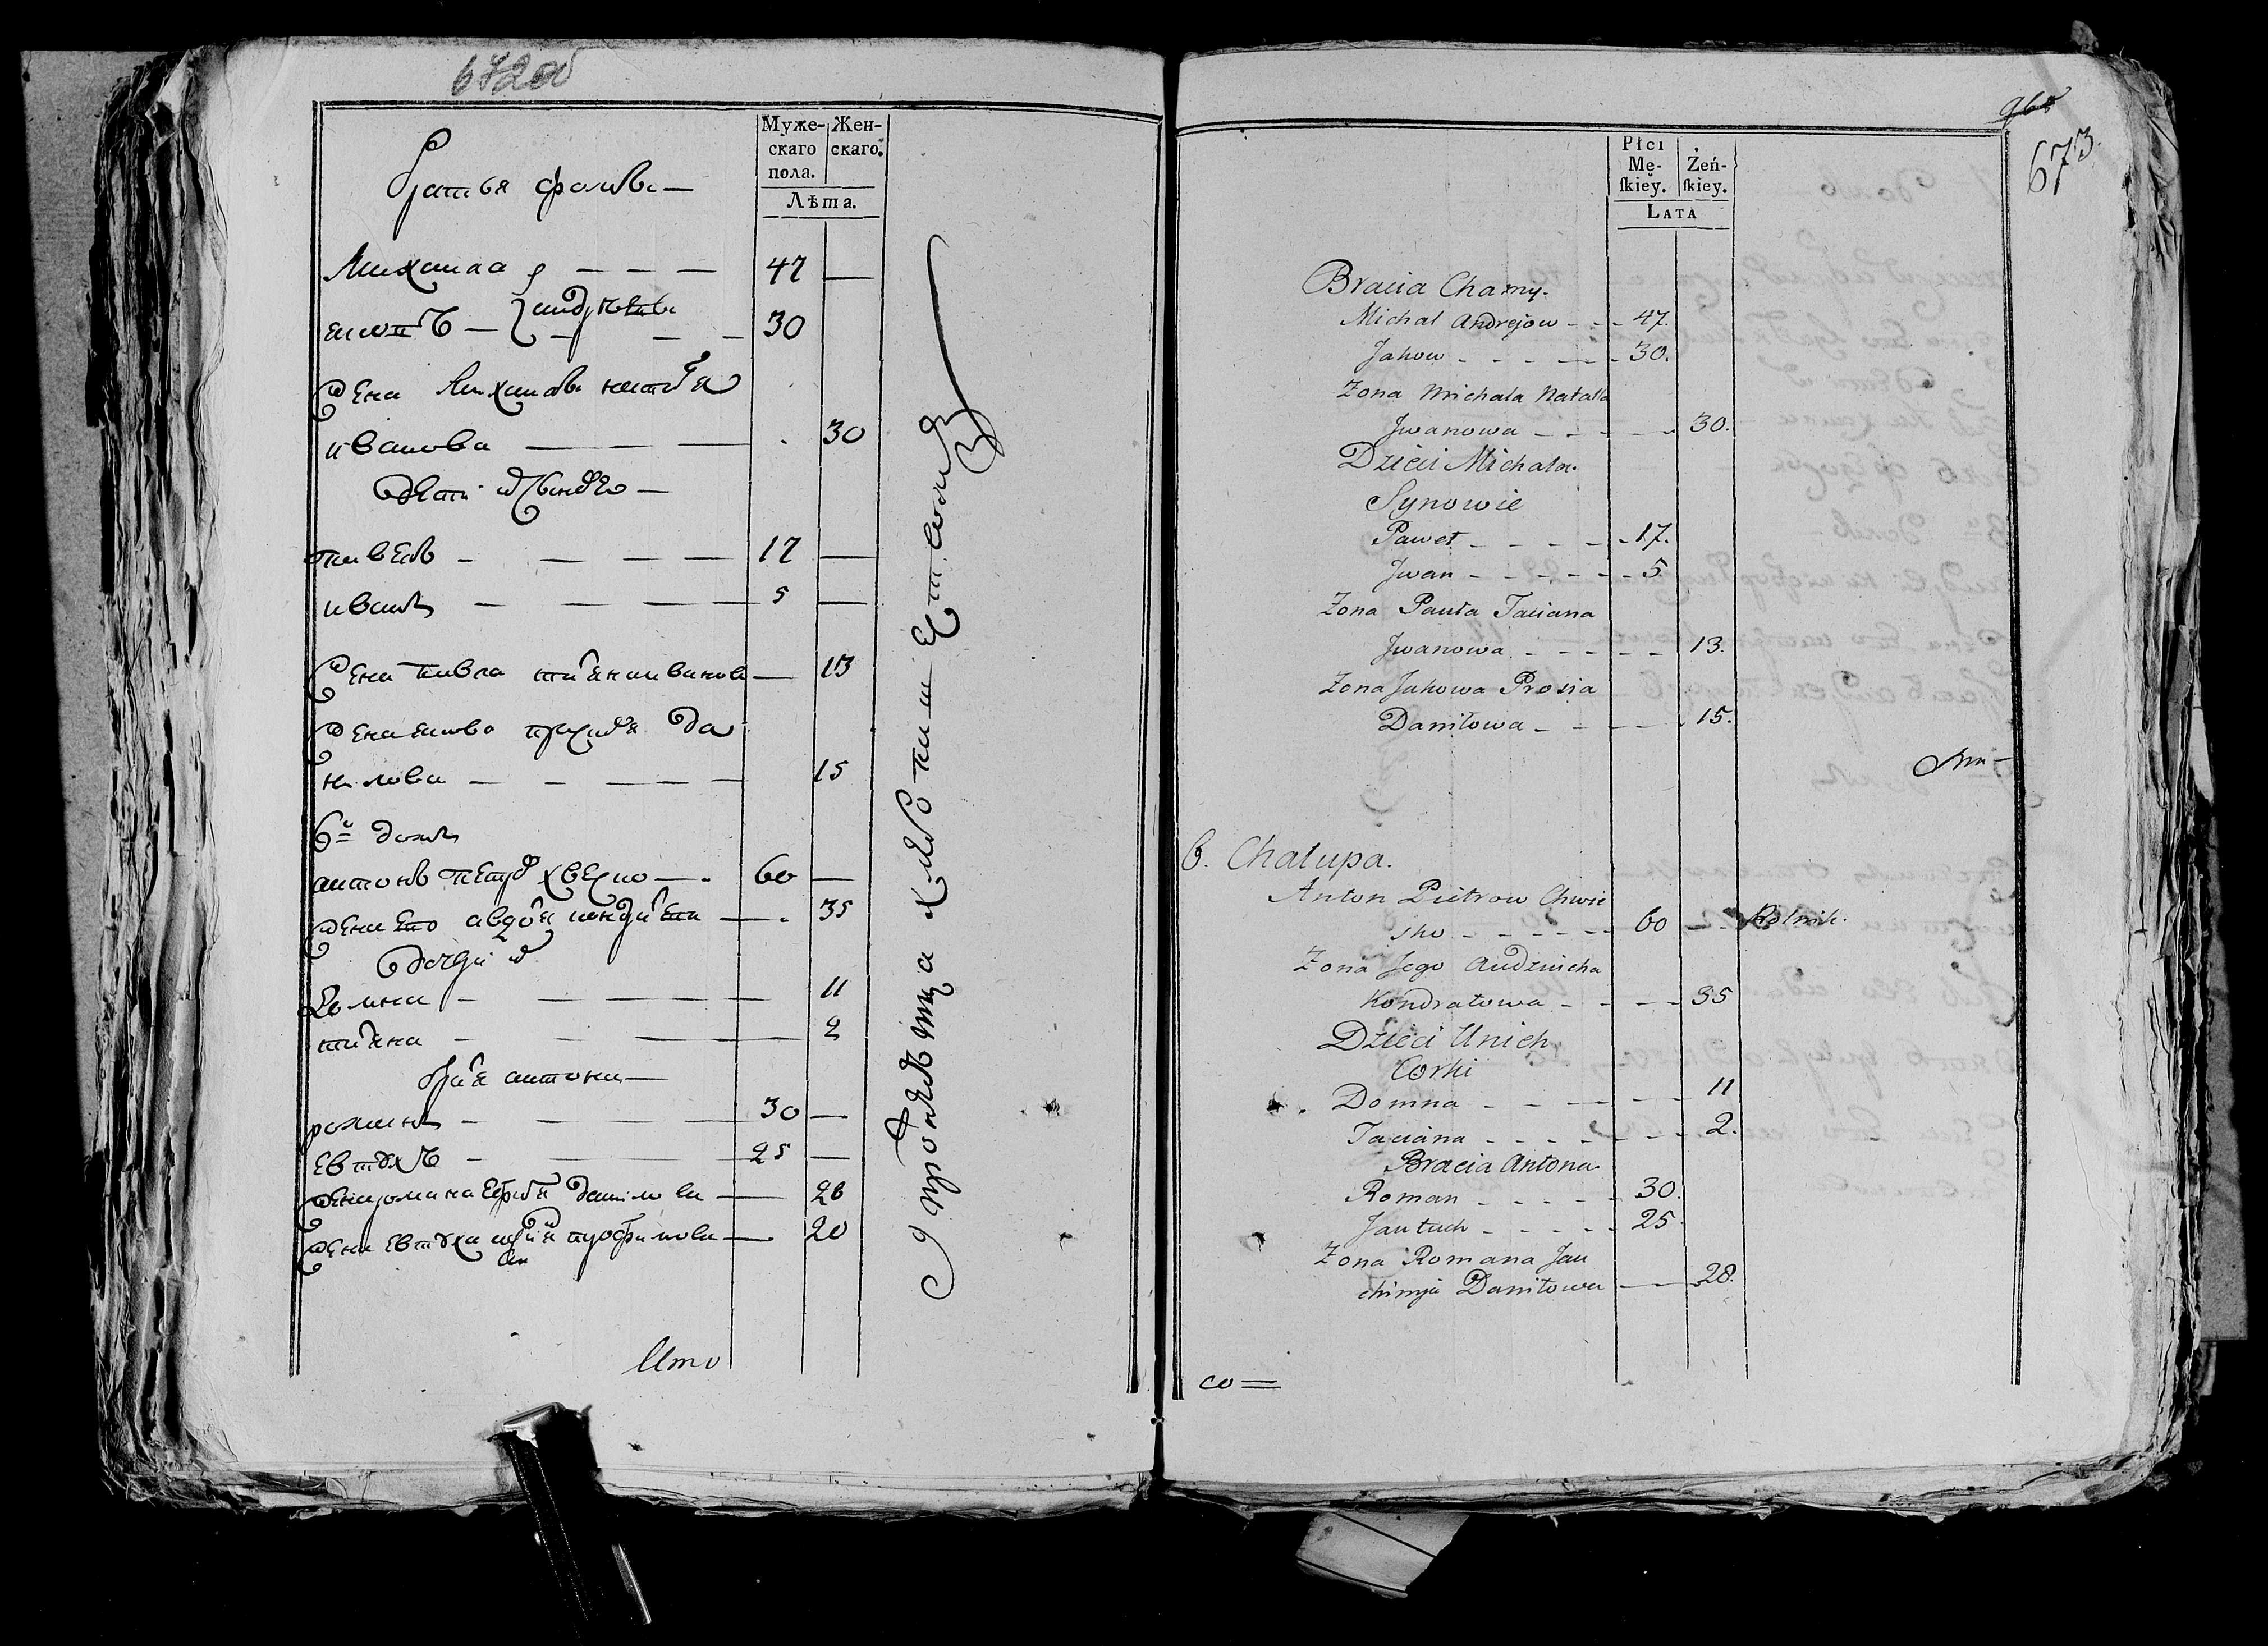 672об
Муже- Жен-
скаго скаго.
пола.
Лѣта.
братья фомы —
Михаила — — — 47 —
андреевы
яковъ — — — — 30
жена Михайлы наталя
иванова — — — 30
дети —
павелъ — — — — 17 —
иванъ — — — — 5 —
жена павла татияна иванова — 13
жена якова просия да
нилова — — — — 15
6й домъ
антонъ петров хвеско — 60 —
жена его авдотя кондратева — 35
дочери
домна — — — — 11
татияна — — — — 2
братя антона —
романъ — — — 30 —
евтухъ — — — 25 —
жена романа данилова — 28
жена евтуха трофимова — 20
Што
960
673.
Płci
Mę- Żeń-
ſkiey. ſkiey.
Lata
Bracia Chamy.
Michał Andrejow - - - 47.
Jakow - - - - - - 30.
Zona Michala Natala
Jwanowa - - - - - 30.
Dzieci Michała.
Synowie
Paweł - - - - - 17.
Jwan - - - - - - 5
Zona Pawła Taciana
Jwanowa - - - - - 13.
Zona Jakowa Prosia
Daniłowa - - - - 15.
6. Chałupa.
Anton Pietrow Chwie
sko - - - - - 60 - - Rolnik.
Zona Jego Audziucha
Kondratowa - - - - 35
Dzieci Unich
Corki
Domna - - - - - 11
Taciana - - - - - - 2.
Bracia Antona
Roman - - - - - 30.
Jautuch - - - - - 25.
Zona Romana Jau
chimja Daniłowa — 28.
co =